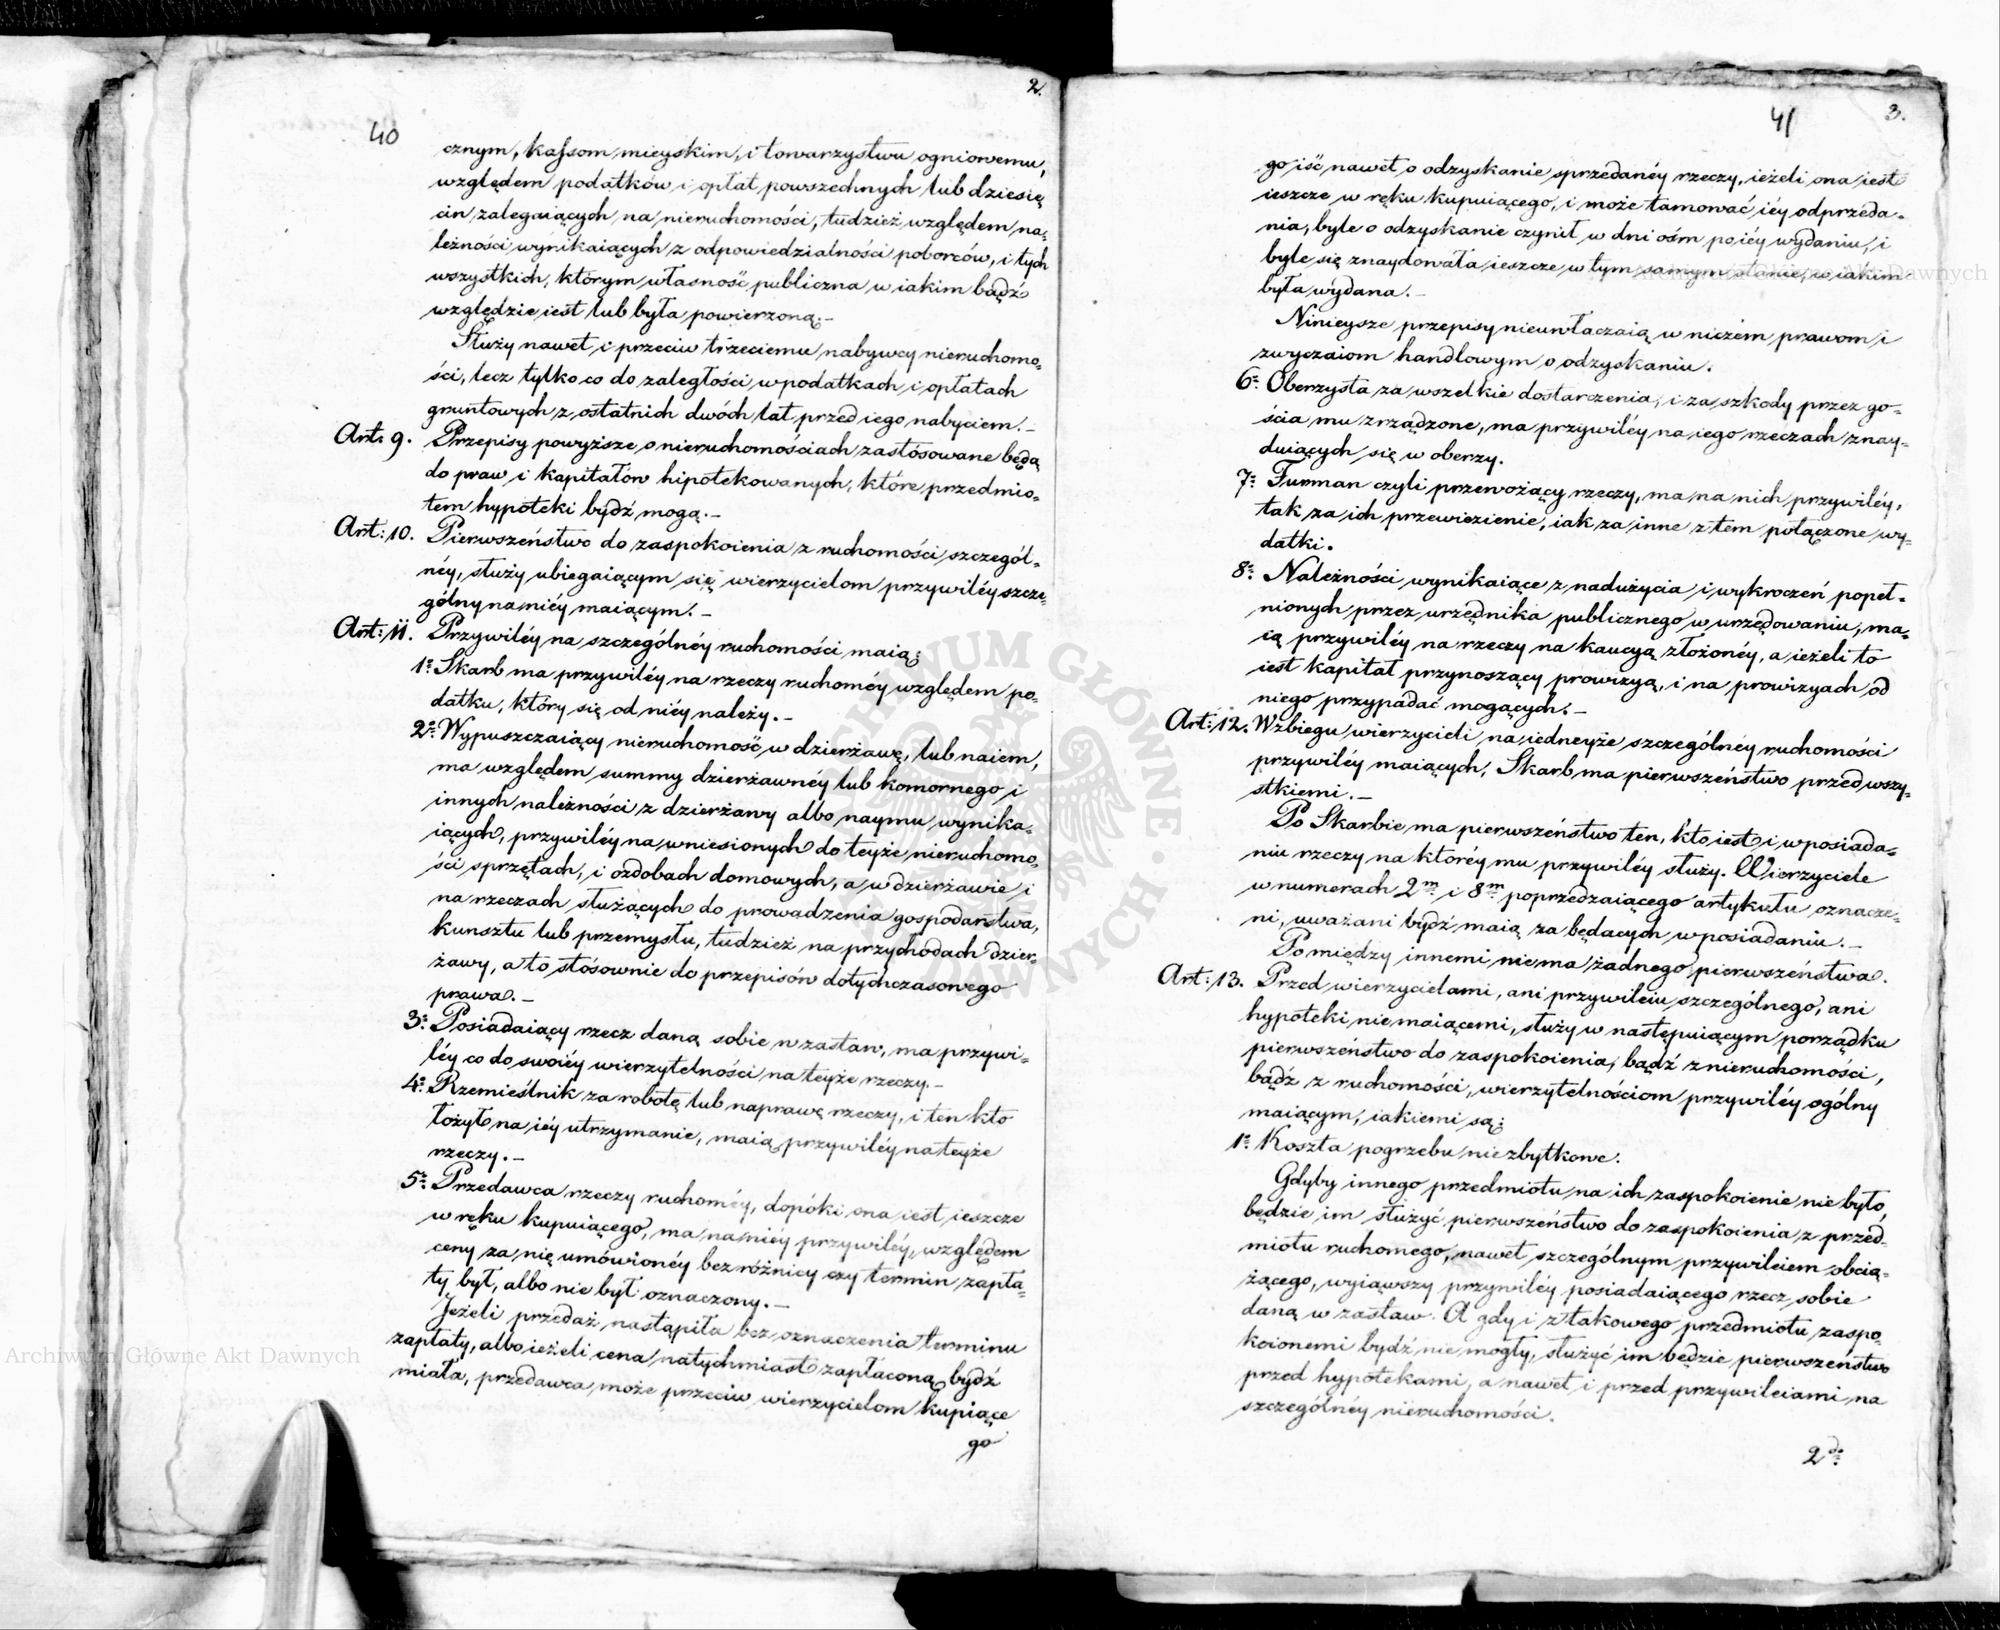 2.
40
cznym, kassom mieyskim, i towarzystwu ogniowemu,
względem podatków i opłat powszechnych lub dziesię
cin zalegaiących na nieruchomości, tudzież względem na=
leżności wynikaiących z odpowiedzialności poborców, i tych
wszystkich, którym własność publiczna w iakim bądź
względzie iest lub była powierzoną.–
Służy nawet i przeciw trzeciemu nabywcy nieruchomo=
ści, lecz tylko co do zaległości w podatkach i opłatach
gruntowych z ostatnich dwóch lat przed iego nabyciem.–
Art: 9. Przepisy powyższe o nieruchomościach zastosowane będą
do praw i kapitałów hipotekowanych, które przedmio=
tem hypoteki bydź mogą.–
Art: 10. Pierwszeństwo do zaspokoienia z ruchomości szczegól=
néy, służy ubiegaiącym się wierzycielom przywiléy szcze=
gólny na niéy maiącym.–
Art: 11. Przywiléy na szczególnéy ruchomości maią:
1º Skarb ma przywiléy na rzeczy ruchoméy względem po=
datku, który się od niéy należy.–
2º Wypuszczaiący nieruchomość w dzierżawę, lub naiem,
ma względem summy dzierżawnéy lub komornego i
innych należności z dzierżawy albo naymu wynika=
iących, przywiléy na wniesionych do teyże nieruchomo=
ści sprzętach, i ozdobach domowych, a w dzierżawie i
na rzeczach służących do prowadzenia gospodarstwa,
kunsztu lub przemysłu, tudzież na przychodach dzier=
żawy, a to stósownie do przepisów dotychczasowego
prawa.–
3º Posiadaiący rzecz daną sobie w zastaw, ma przywi=
léy co do swoiéy wierzytelności na teyże rzeczy.–
4º Rzemieślnik za robotę lub naprawę rzeczy, i ten kto
łożył na iéy utrzymanie, maią przywiléy na teyże
rzeczy.–
5º Przedawca rzeczy ruchoméy, dopóki ona iest ieszcze
w ręku kupuiącego, ma na niéy przywiléy, względem
ceny za nię umówionéy bez różnicy czy termin zapła=
ty był, albo nie był oznaczony.–
Jeżeli przedaż nastąpiła bez oznaczenia terminu
zapłaty, albo ieżeli cena natychmiast zapłaconą bydź
miała, przedawca może przeciw wierzycielom kupiące
go
41
3.
go iść nawet o odzyskanie sprzedanéy rzeczy, ieżeli ona iest
ieszcze w ręku kupuiącego, i może tamować iéy odprzeda=
nia, byle o odzyskanie czynił w dni ośm po iéy wydaniu, i
byle się znaydowała ieszcze w tym samym stanie, w iakim
była wydana.–
Ninieysze przepisy nieuwłaczaią w niczém prawom i
zwyczaiom handlowym o odzyskaniu.
6º Oberzysta za wszelkie dostarczenia, i za szkody przez go=
ścia mu zrządzone, ma przywiléy na iego rzeczach znay=
duiących się w oberzy.
7º Furman czyli przewożący rzeczy, ma na nich przywiléy,
tak za ich przewiezienie, iak za inne z tem połączone wy=
datki.
8º Należności wynikaiące z nadużycia i wykroczeń popeł=
nionych przez urzędnika publicznego w urzędowaniu, ma=
ią przywiléy na rzeczy na kaucyą złożonéy, a ieżeli to
iest kapitał przynoszący prowizyą, i na prowizyach od
niego przypadać mogących.–
Art: 12. W zbiegu wierzycieli na iedneyże szczególnéy ruchomości
przywiléy maiących, Skarb ma pierwszeństwo przed wszy=
stkiemi.–
Po Skarbie ma pierwszeństwo ten, kto iest i w posiada=
niu rzeczy na któréy mu przywiléy służy. Wierzyciele
w numerach 2m i 8m poprzedzaiącego artykułu oznacze=
ni, uważani bydź maią za będacych w posiadaniu.–
Pomiędzy innemi niema żadnego pierwszeństwa.
Art: 13. Przed wierzycielami, ani przywileiu szczególnego, ani
hypoteki niemaiącemi, służy w następuiącym porządku
pierwszeństwo do zaspokoienia, bądź z nieruchomości,
bądź z ruchomości, wierzytelnościom przywiléy ogólny
maiącym, iakiemi są:
1º Koszta pogrzebu niezbytkowe.
Gdyby innego przedmiotu na ich zaspokoienie nie było,
będzie im służyć pierwszeństwo do zaspokoienia z przed=
miotu ruchomego, nawet szczególnym przywileiem obcią=
żącego, wyiąwszy przywiléy posiadaiącego rzecz sobie
daną w zastaw. A gdy i z takowego przedmiotu zaspo=
koionemi bydź nie mogły, służyć im będzie pierwszeństwo
przed hypotekami, a nawet i przed przywileiami na
szczególnéy nieruchomości.
2do
Archiwum Główne Akt Dawnych
Archiwum Główne Akt Dawnych
ARCHIWUM GŁÓWNE · AKT DAWNYCH ·